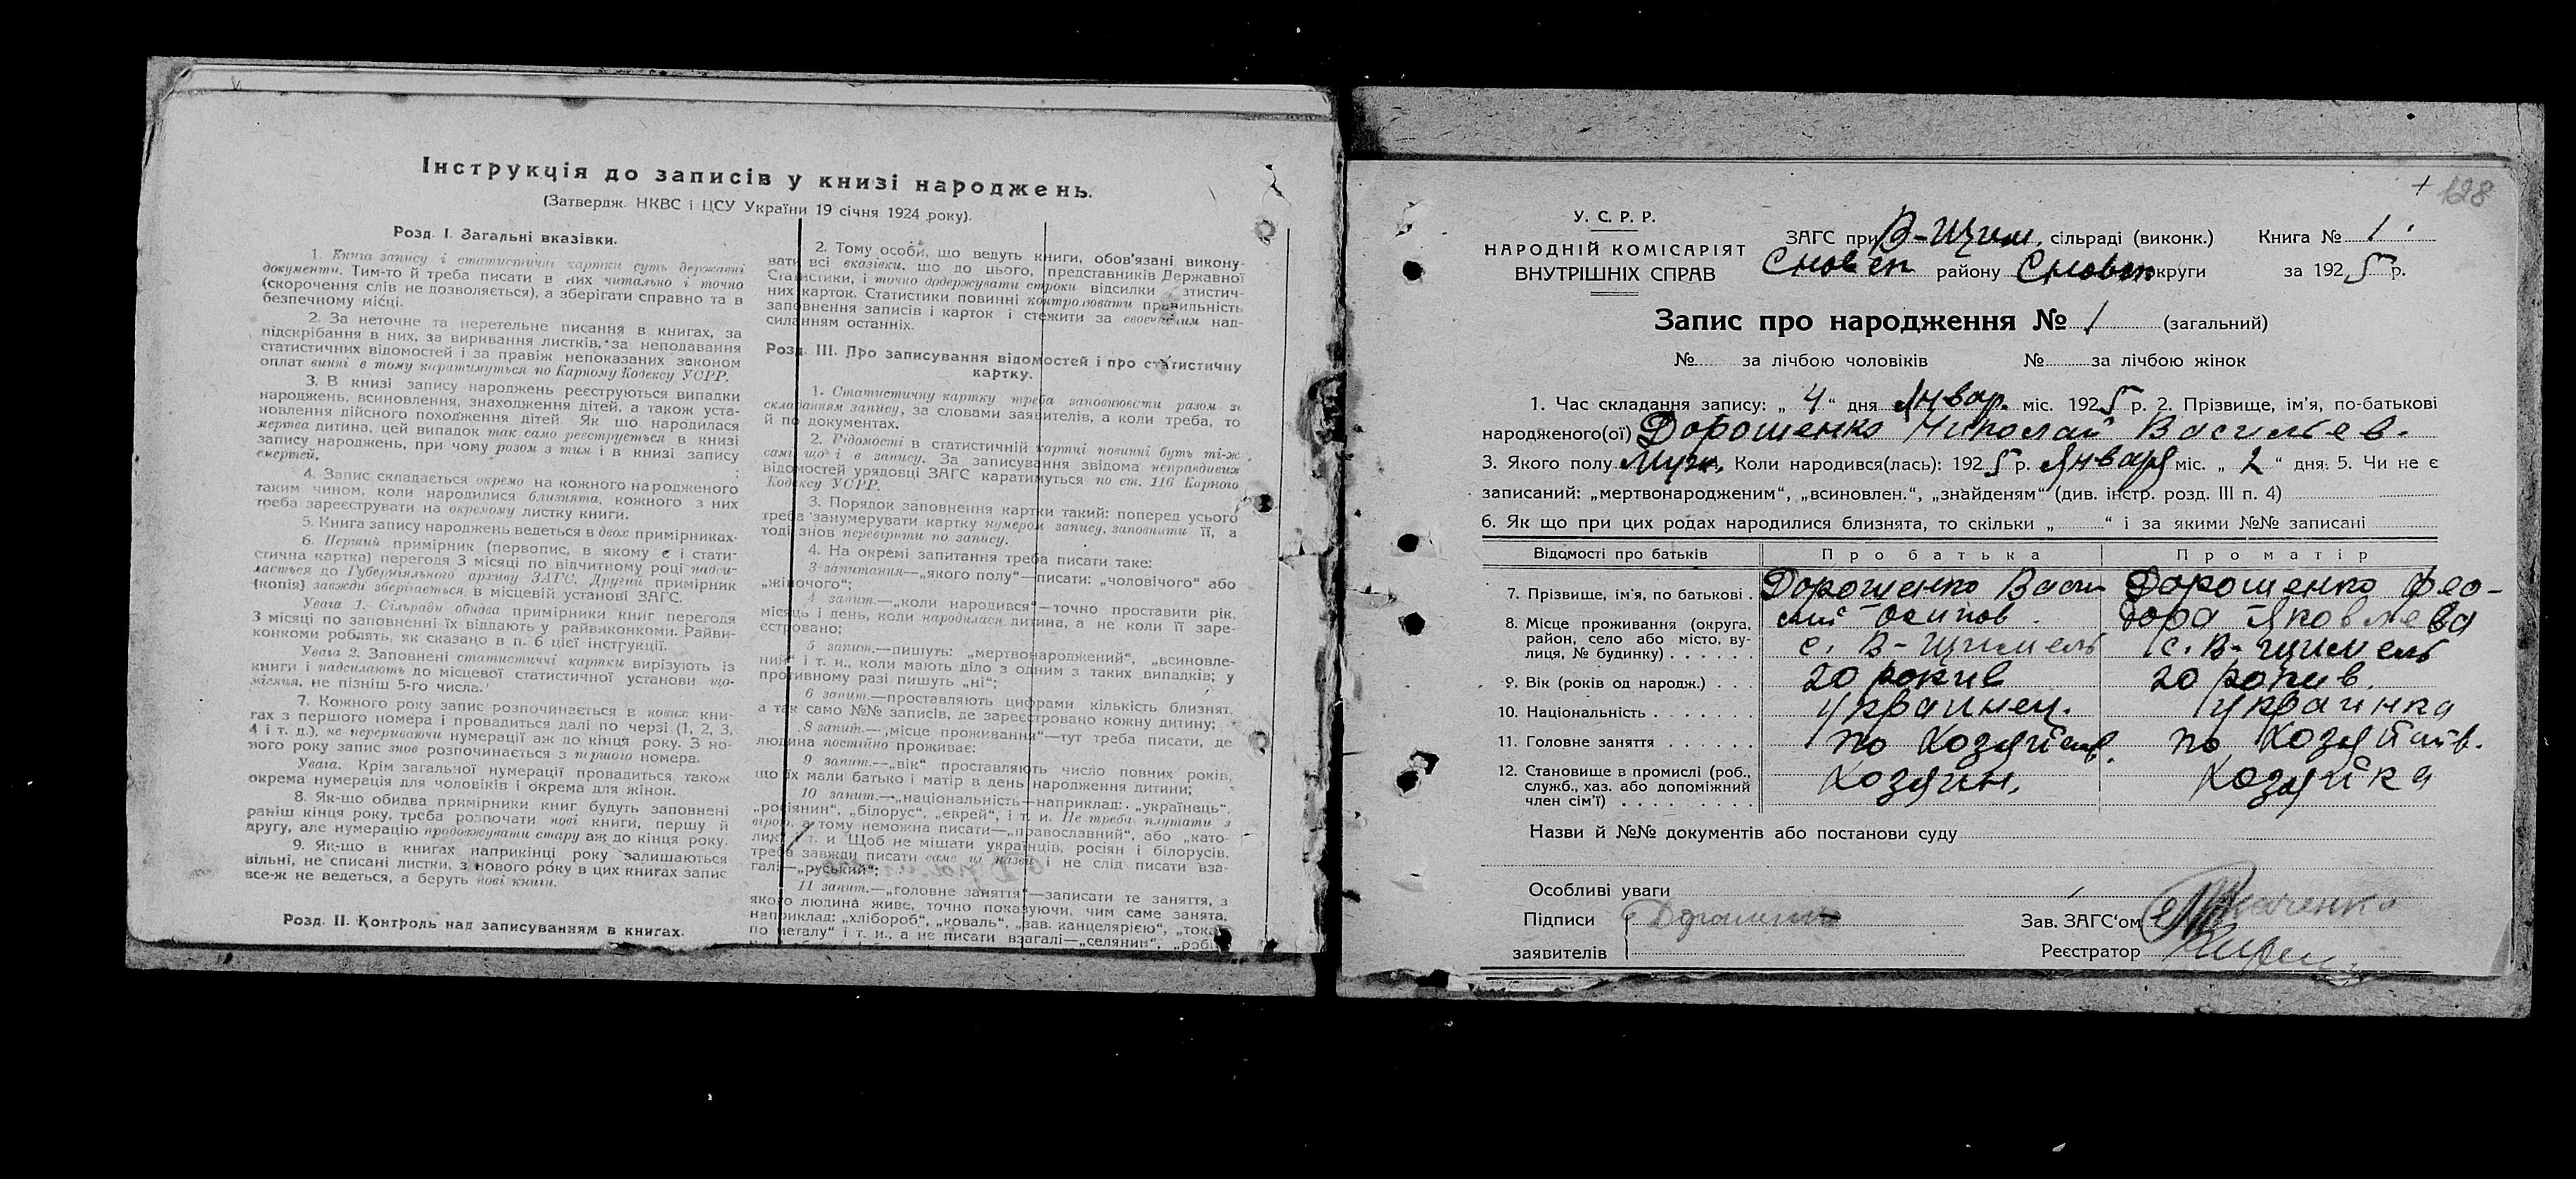 Інструкція до записів у книзі народжень.
(Затвердж. НКВС і ЦСУ України 19 січня 1924 року).
Розд. I. Загальні вказівки.
1. Книга запису і статистичні картки суть державні
документи. Тим-то й треба писати в них читально і точно
(скорочення слів не дозволяється), а зберігати справно та в
безпечному місці.
2. За неточне та неретельне писання в книгах, за
підскрібання в них, за виривання листків, за неподавання
статистичних відомостей і за правіж непоказаних законом
оплат винні в тому каратимуться по Карному Кодексу УСРР.
3. В книзі запису народжень реєструються випадки
народжень, всиновлення, знаходження дітей, а також уста-
новлення дійсного походження дітей. Як що народилася
мертва дитина, цей випадок так само реєструється в книзі
запису народжень, при чому разом з тим і в книзі запису
смертей.
4. Запис складається окремо на кожного народженого
таким чином, коли народилися близнята, кожного з них
треба зареєструвати на окремому листку книги.
5. Книга запису народжень ведеться в двох примірниках.
6. Перший примірник (первопис, в якому є і стати-
стична картка) перегодя 3 місяці по відчитному році надси-
лається до Губерніяльного архиву ЗАГС. Другий примірник
(копія) завжди зберігається в місцевій установі ЗАГС.
Увага 1. Сільради обидва примірники книг перегодя
3 місяці по заповненні їх віддають у райвиконкоми. Райви-
конкоми роблять, як сказано в п. 6 цієї інструкції.
Увага 2. Заповнені статистичні картки вирізують із
книги і надсилають до місцевої статистичної установи що-
місяця, не пізніш 5-го числа.
7. Кожного року запис розпочинається в нових кни-
гах з першого номера і провадиться далі по черзі (1, 2, 3,
4 і т. д.), не перериваючи нумерації аж до кінця року. З но-
вого року запис знов розпочинається з першого номера.
Увага. Крім загальної нумерації провадиться також
окрема нумерація для чоловіків і окрема для жінок.
8. Як-що обидва примірники книг будуть заповнені
раніш кінця року, треба розпочати нові книги, першу й
другу, але нумерацію продовжувати стару аж до кінця року.
9. Як-що в книгах наприкінці року залишаються
вільні, не списані листки, з нового року в цих книгах запис
все-ж не ведеться, а беруть нові книги.
Розд. II. Контроль над записуванням в книгах.
2. Тому особи, що ведуть книги, обов'язані викону-
вати всі вказівки, що до цього, представників Державної
Статистики, і точно додержувати строки відсилки статистич-
них карток. Статистики повинні контролювати правильність
заповнення записів і карток і стежити за своєчасним над-
силанням останніх.
Розд. III. Про записування відомостей і про статистичну
картку.
1. Статистичну картку треба заповнювати разом зі
складанням запису, за словами заявителів, а коли треба, то
й по документах.
2. Відомості в статистичній картці повинні буть ті-ж
самі що і в запису. За записування звідома неправдивих
відомостей урядовці ЗАГС каратимуться по ст. 116 Карного
Кодексу УСРР.
3. Порядок заповнення картки такий: поперед усього
треба занумерувати картку нумером запису, заповнити її, а
тоді знов перевірити по запису.
4. На окремі запитання треба писати таке:
3 запитання—„якого полу“—писати: „чоловічого“ або
„жіночого“;
4 запит.—„коли народився“—точно проставити рік,
місяць і день, коли народилася дитина, а не коли її заре-
єстровано;
5 запит.—пишуть: „мертвонароджений“, „всиновле-
ний“ і т. и., коли мають діло з одним з таких випадків; у
противному разі пишуть „ні“;
6 запит.—проставляють цифрами кількість близнят,
а так само №№ записів, де зареєстровано кожну дитину;
8 запит.—„місце проживання“—тут треба писати, де
людина постійно проживає;
9 запит.—„вік“ проставляють число повних років,
що їх мали батько і матір в день народження дитини;
10 запит.—„національність—наприклад: „українець“,
„росіянин“, „білорус“, „еврей“, і т. и. Не треба плутати з
вірою, а тому неможна писати—„православний“, або „като-
лик“ і т. и Щоб не мішати українців, росіян і білорусів,
треба завжди писати саме ці назви і не слід писати вза-
галі—„руський“;
11 запит.—„головне заняття“—записати те заняття, з
якого людина живе, точно показуючи, чим саме занята,
наприклад: „хлібороб“, „коваль“, „зав. канцелярією“, „токар
по металу“ і т. и., а не писати взагалі—„селянин“, „робіт-
128
У. С. Р. Р.
НАРОДНІЙ КОМІСАРІЯТ
ВНУТРІШНІХ СПРАВ
ЗАГС при В-Щим. сільраді (виконк.) Книга № 1.
Сновськ району Сновск округи за 1925 р.
Запис про народження № 1 (загальний)
№ за лічбою чоловіків № за лічбою жінок
1. Час складання запису: „4“ дня Январ. міс. 1925 р. 2. Прізвище, ім'я, по-батькові
народженого(ої) Дорошенко Николай Васильев.
3. Якого полу Муж. Коли народився(лась): 1925 р. Января міс. „2“ дня. 5. Чи не є
записаний: „мертвонародженим“, „всиновлен.“, „знайденям“ (див. інстр. розд. III п. 4)
6. Як що при цих родах народилися близнята, то скільки „ “ і за якими №№ записані
Відомості про батьків Про батька Про матір
7. Прізвище, ім'я, по батькові . Дорошенко Васи- Дорошенко Фео-
лий Осипов. дора Яковлева
8. Місце проживання (округа,
район, село або місто, ву-
лиця, № будинку) . . . . . с. В-Щимель с. В-Щимель
9. Вік (років од народж.) . . 20 рокив 20 рокив.
10. Національність . . . . . . Украинец. Украинка
11. Головне заняття . . . . . . по хозяйств. по хозяйств.
12. Становище в промислі (роб.,
служб., хаз. або допоміжний
член сім'ї) . . . . . . Хозяин. Хозяйка
Назви й №№ документів або постанови суду
Особливі уваги
Підписи Дорошенко Зав. ЗАГС'ом Ткаченко
заявителів Реєстратор